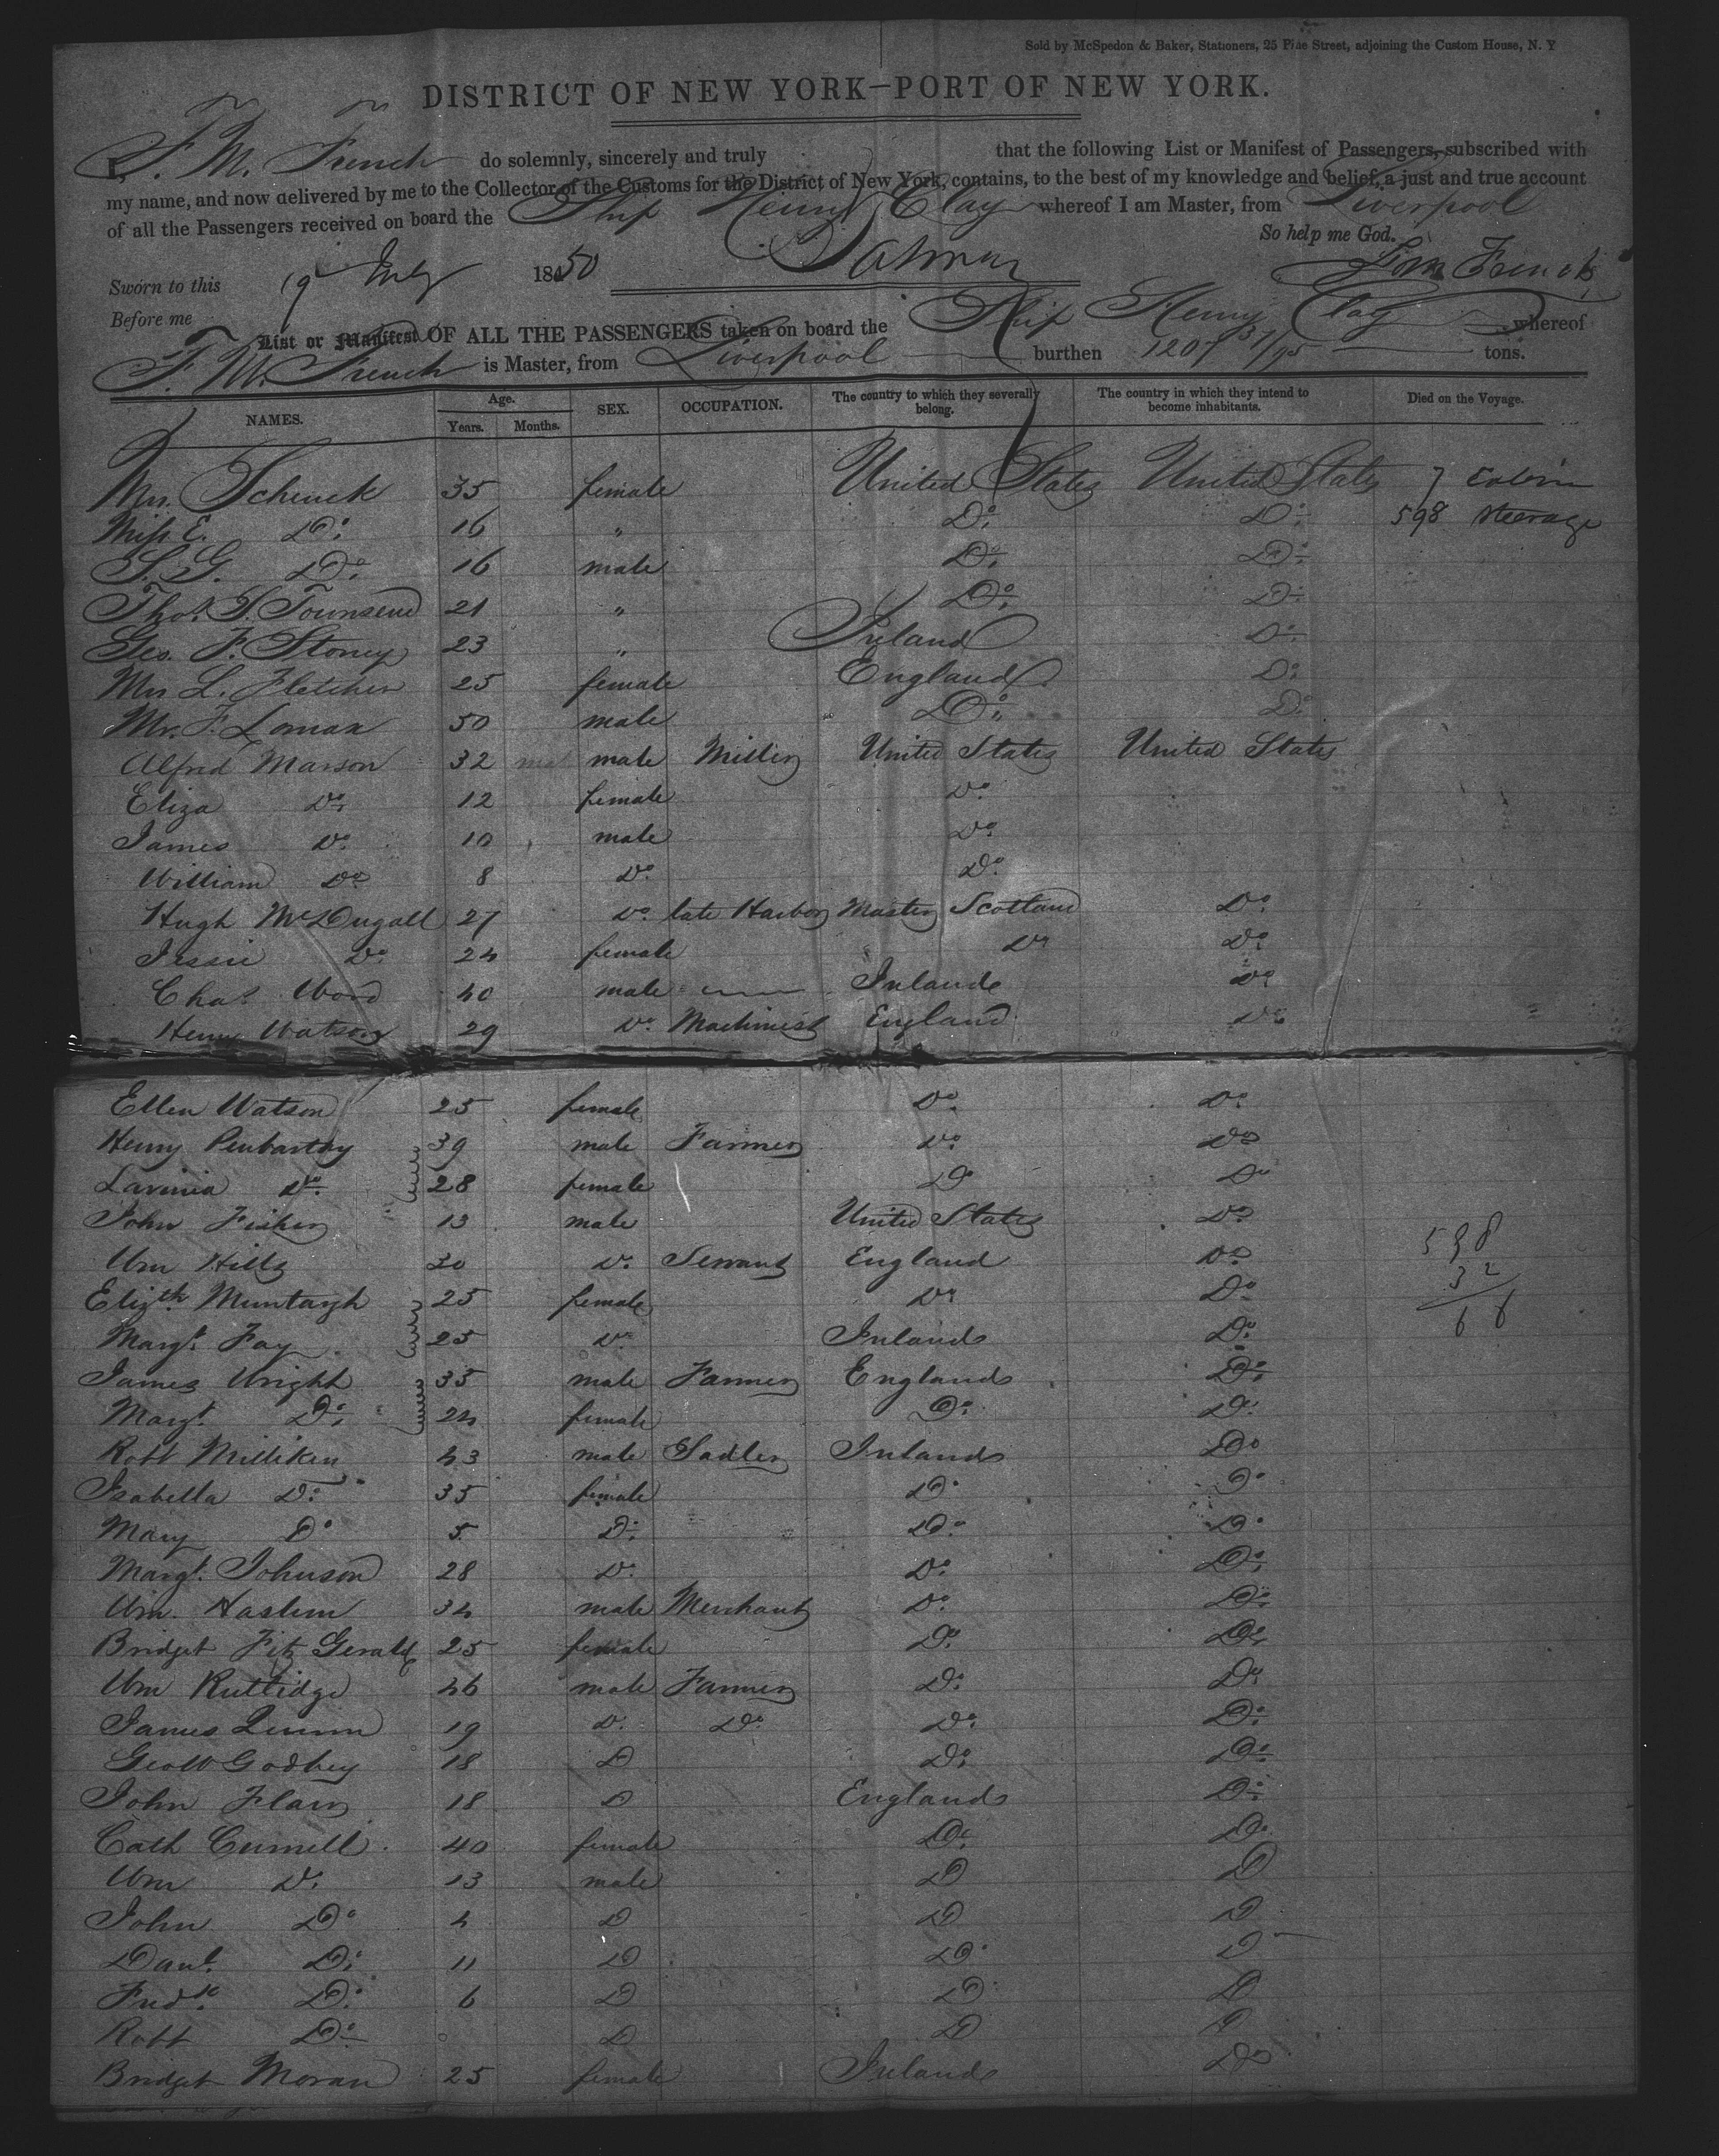 Sold by McSpedon & Baker, Stationers, 25 Pine Street, adjoining the Custom House, N. Y
DISTRICT OF NEW YORK—PORT OF NEW YORK.
I, F. M. French do solemnly, sincerely and truly that the following List or Manifest of Passengers, subscribed with
my name, and now delivered by me to the Collector of the Customs for the District of New York, contains, to the best of my knowledge and belief, a just and true account
of all the Passengers received on board the Ship Henry Clay whereof I am Master, from Liverpool
So help me God.
Sworn to this 19 July 1850
Before me
List or Manifest OF ALL THE PASSENGERS taken on board the Ship Henry Clay whereof
F. M. French is Master, from Liverpool burthen 1207 37/95 tons.
NAMES. Age. Years. Months. SEX. OCCUPATION. The country to which they severally belong. The country in which they intend to become inhabitants. Died on the Voyage.
Mrs. Schenck 35 female United States United States 7 Cabin
Miss E. Do. 16 " Do. Do. 598 Steerage
S. G. Do. 16 male Do. Do.
Thos. S. Townsend 21 " Do. Do.
Geo. F. Stoney 23 " Ireland Do.
Mrs L. Fletcher 25 female England Do.
Mr. F. Lomax 50 male Do. Do.
Alfred Marson 32 male Miller United States United States
Eliza Do. 12 female Do.
James Do. 10 male Do.
William Do. 8 Do. Do.
Hugh McDugall 27 Do. late Harbor Master Scotland Do.
Jessie Do. 24 female Do. Do.
Chas. Wood 40 male Ireland Do.
Henry Watson 29 Do. Machinist England Do.
Ellen Watson 25 female Do. Do.
Henry Penbarthy 39 male Farmer Do. Do.
Lavinia Do. 28 female Do. Do.
John Fisher 13 male United States Do.
Wm Hills 30 Do. Servant England Do. 598
Elizth 25 female Do. Do. 32
Margt. Fay 25 Do. Ireland Do. 66
James Wright 35 male Farmer England Do.
Margt. Do. 24 female Do. Do.
Robt Milliken 43 male Sadler Ireland Do.
Isabella Do. 35 female Do. Do.
Mary Do. 5 Do. Do. Do.
Margt. Johnson 28 Do. Do. Do.
Wm. Haslem 34 male Merchant Do. Do.
Bridget Fitz Gerald 25 female Do. Do.
Wm Ruttidge 46 male Farmer Do. Do.
James Quinn 19 Do. Do. Do. Do.
Godbey 18 D Do. Do.
John 18 D England Do.
Cath Cumell 40 female Do. Do.
Wm Do. 13 male D D
John Do. 4 D D D
Danl. Do. 11 D Do. D
Fredk. Do. 6 D D D
Robt Do. D D D
Bridget Moran 25 female Ireland Do.